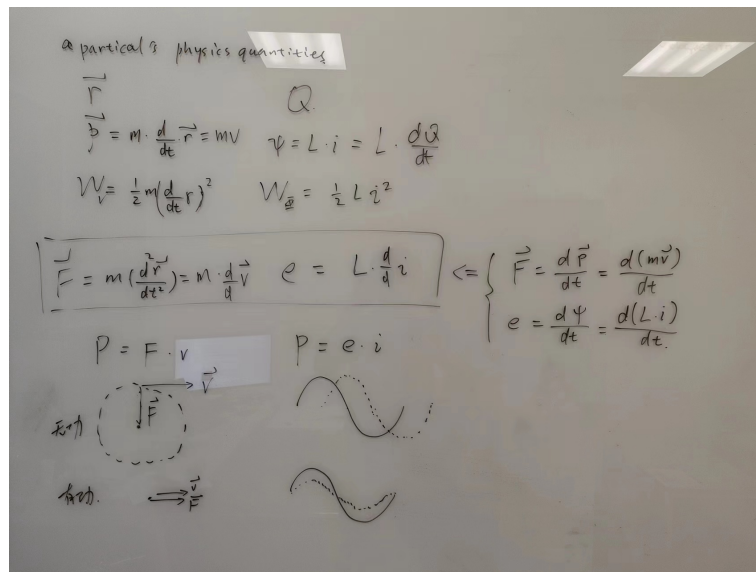 a partical's physics quantities
r⃗ Q
p⃗ = m · d/dt r⃗ = mv ψ = L · i = L · dQ/dt
W_v = ½ m(d/dt r)² W_Φ = ½ L i²
F⃗ = m(d²r⃗/dt²) = m · d/d v⃗ e = L · d/d i <= { F⃗ = dp⃗/dt = d(mv⃗)/dt
e = dψ/dt = d(L·i)/dt.
P = F · v P = e · i
v⃗
F⃗
无功
有功. v⃗
F